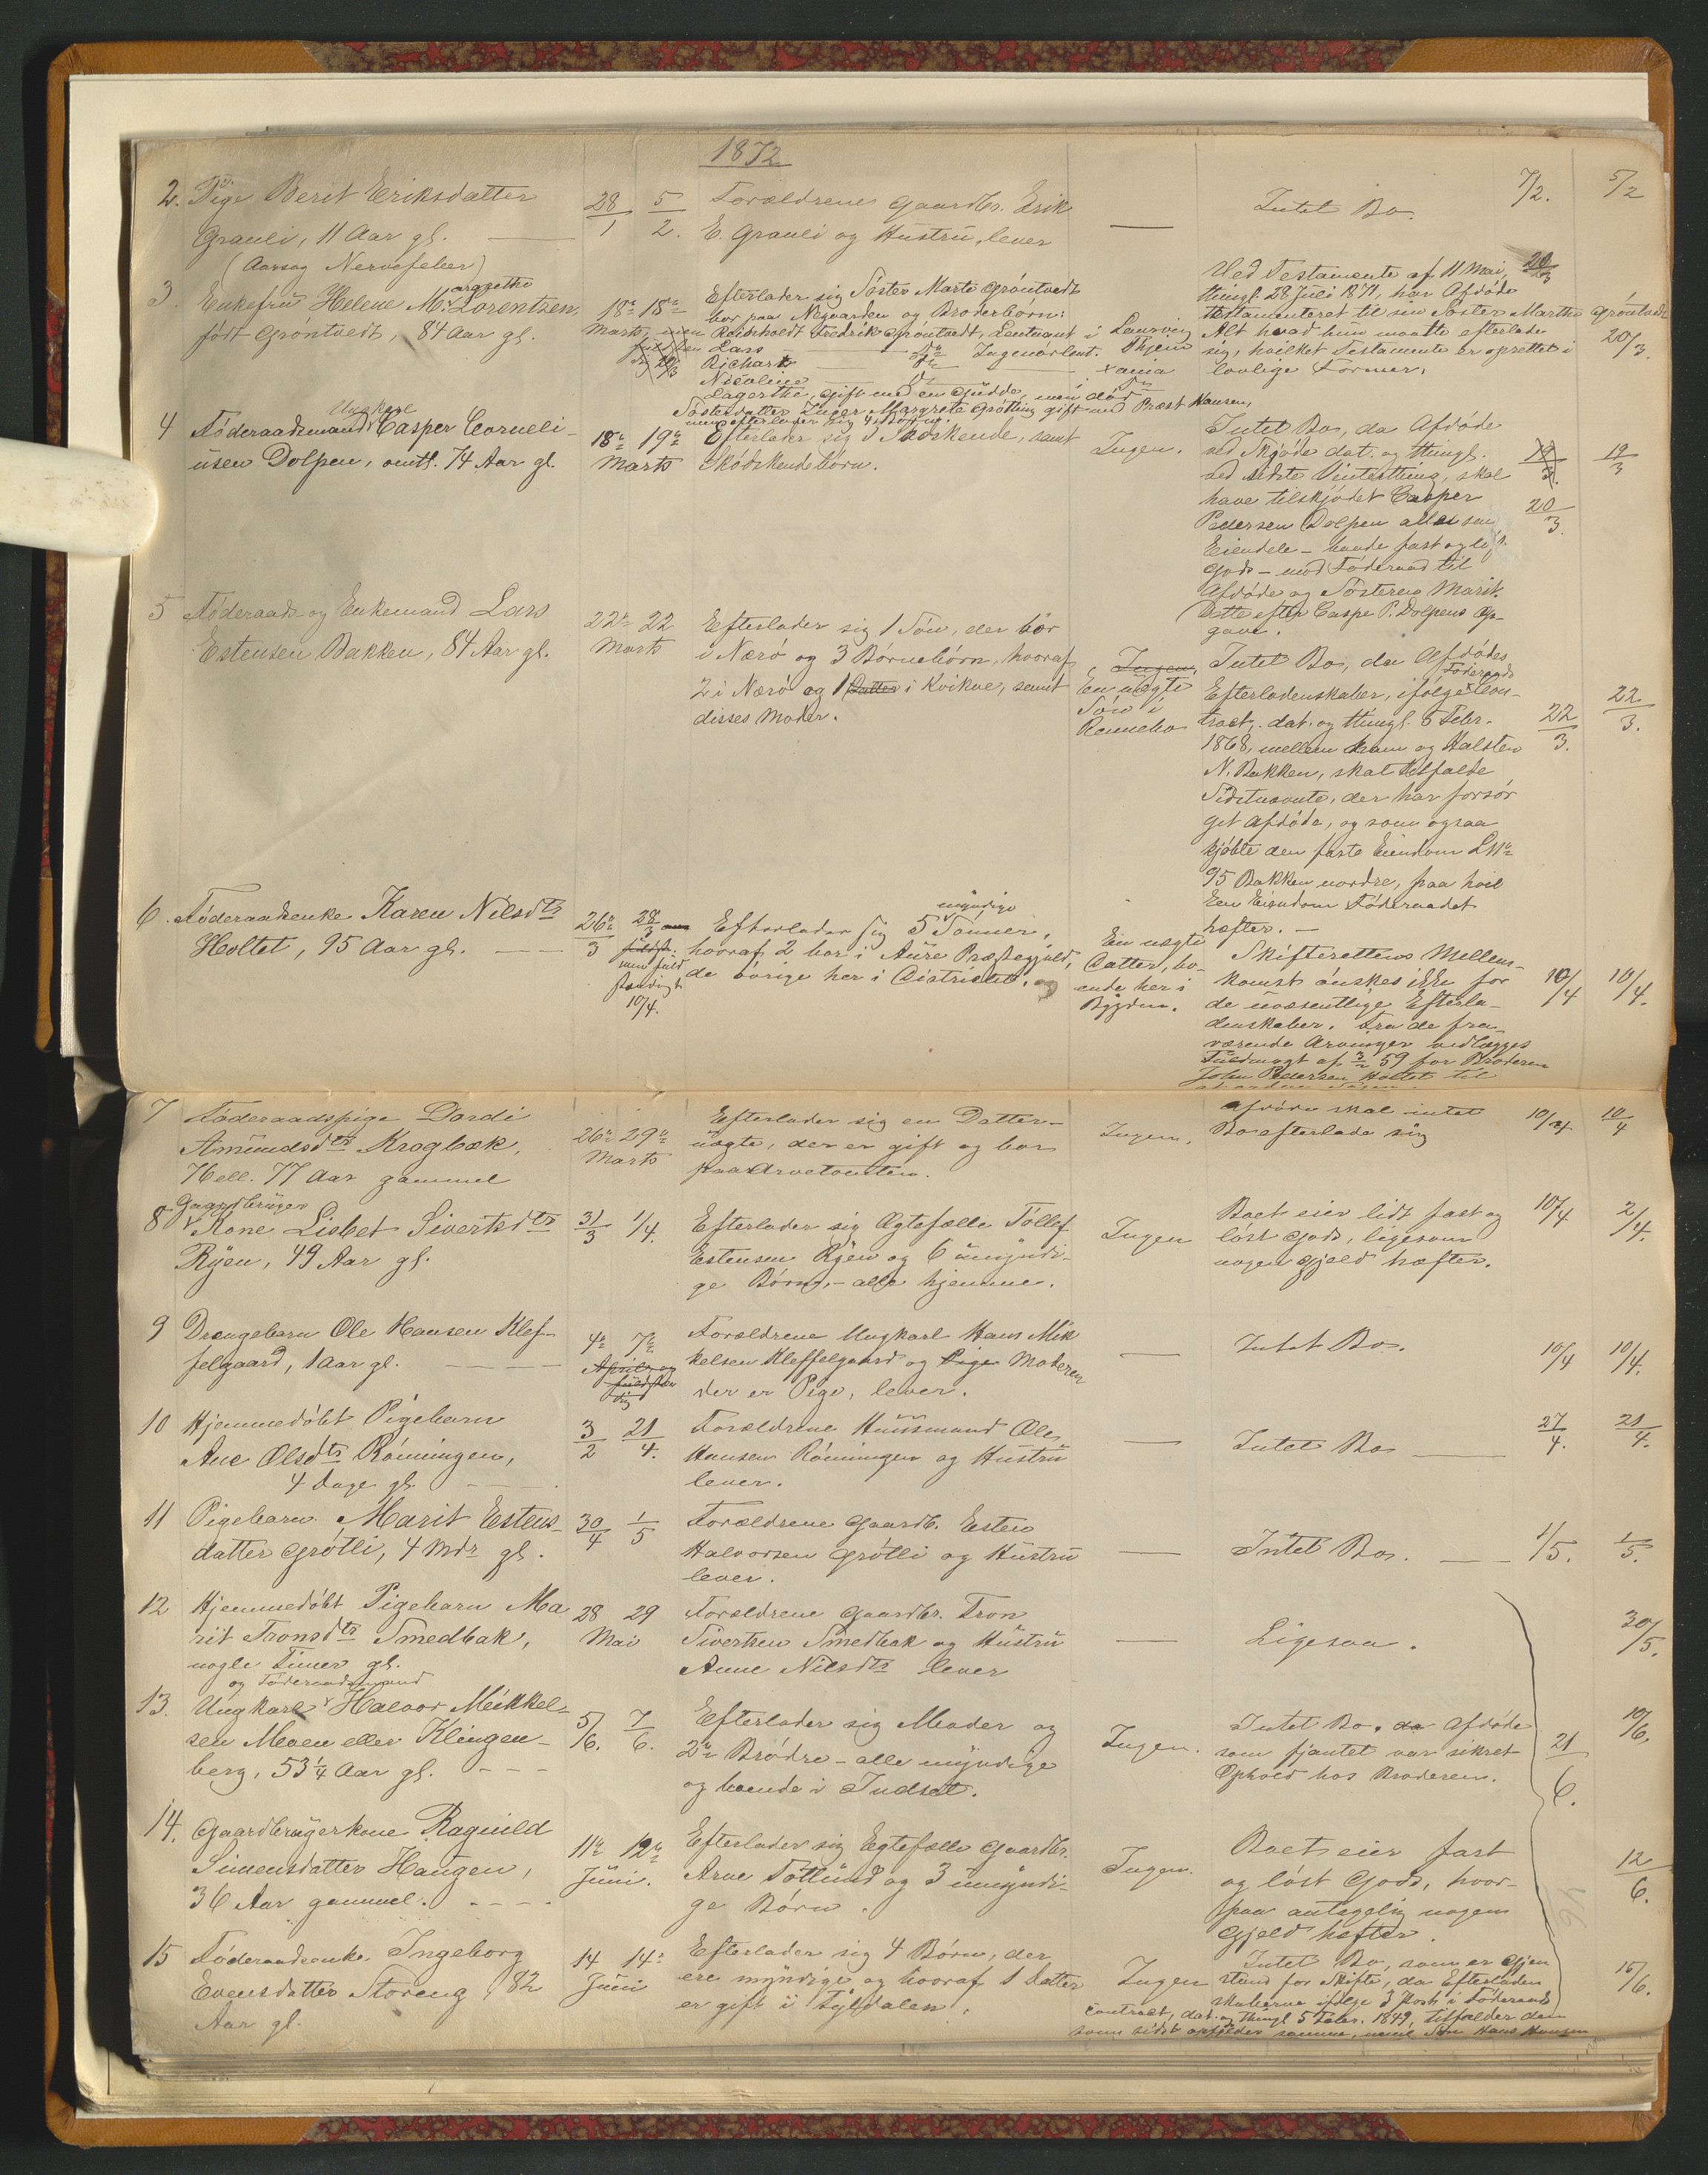 1872
2. Pige Berit Eriksdatter
Grauli, 11 Aar gl.
(Aarsag Nervefeber)
28/1 5/2.
Forældrene Gaardbr. Erik
E. Grauli og Hustru, lever
Intet Bo.
7/2. 5/2
3 Enkefru Helene Margrethe Lorentzen,
født Grøntvedt, 84 Aar gl.
18de 18de
Marts
Efterlader sig Søster Marte Grøntvedt
bor paa Nygaarden og Broderbørn:
Fredrik Grøntvedt, Leutnant i Laurvig
Lars do Ingeniørleut. Thjem
Richart
Nicoline do i do
Lagerthe, gift med en Gudde, men død
Søsterdatter Inger Margrete Gøtting gift med Præst Hansen,
men efterlader sig 4 Børn
Ved Testamente af 11 Mai,
thingl. 28 Juli 1871, har Afdøde
testamenteret til sin Søster Marthe Grøntvedt
Alt hvad hun maatte efterlade
sig, hvilket Testamente er oprettet i
lovlige Former.
20/3
20/3.
4 Føderaadsmand Ungkarl Casper Corneli-
usen Dolpen, omtl. 74 Aar gl.
18de 19de
Marts
Efterlader sig 3 Søskende, samt
Skødskendebørn.
Ingen.
Intet Bo, da Afdøde
ved Skjøde dat. og thingl.
ved sidste Vinterthing, skal
have tilskjødet Casper
Pedersen Dolpen alle sine
Eiendele – baade fast og løst
Gods – mod Føderaad til
Afdøde og Søsteren Marit.
Dette efter Casper P. Dolpens Op-
gave.
19/3.
20/3.
19/3
5 Føderaads- og Enkemand Lars
Estensen Bakken, 84 Aar gl.
22de 22
Marts
Efterlader sig 1 Søn, der bor
i Nærø og 3 Børnebørn, hvoraf
2 i Nærø og 1 Datter i Kvikne, samt
disses Moder.
Ingen,
En uægte
Søn i
Rennebo
Intet Bo, da Afdødes
Efterladenskaber, ifølge Føderaads Con-
tract, dat. og thingl. 5 Febr.
1868, mellem ham og Halsten
N. Bakken, skal tilfalde
Sidstnævnte, der har forsør
get Afdøde, og som ogsaa
kjøbte den faste Eiendom LNo
95 Bakken nordre, paa hvil
ken Eiendom Føderaadet
hæfter. –
22/3.
22/3.
6. Føderaadsenke Karen Nilsdtr
Holtet, 95 Aar gl.
26de/3 28/3
men fuld
stændigt
10/4.
Efterlader sig 5 myndige Sønner,
hvoraf 2 bor i Aure Præstegjæld,
de øvrige her i Districtet.
En uægte
Datter, bo-
ende her i
Bygden.
Skifterettens Mellem-
komst ønskes ikke for
de uvæsentlige Efterla-
denskaber. Fra de fra-
værende Arvinger vedlægges
Fuldmagt af 3/2 59 for Broderen
John Pedersen Holtet til
10/4 10/4.
7 Føderaadspige Dordi
Amundsdtr Krogbæk,
Hell. 77 Aar gammel
26de 29de
Marts
Efterlader sig en Datter-
uægte, der er gift og bor
paa Arvetomten.
Ingen.
Afdøde skal intet
Bo efterlade sig
10/4 10/4
8 Gaardbruger Kone Lisbet Sivertsdtr
Ryen, 49 Aar gl.
31/3 1/4.
Efterlader sig Ægtefælle Tollef
Estensen Ryen og 6 umyndi-
ge Børn, – alle hjemme.
Ingen
Boet eier lidt fast og
løst Gods, ligesom
nogen Gjeld hæfter.
10/4 2/4.
9 Drengebarn Ole Hansen Klef-
felgaard, 1 Aar gl.
4de 7de
April
Forældrene Ungkarl Hans Mik
kelsen Kleffelgaard og Pige Moderen
der er Pige, lever.
Intet Bo.
10/4 10/4.
10 Hjemmedøbt Pigebarn
Ane Olsdtr Rønningen,
4 Dage gl.
3/2 21/4.
Forældrene Huusmand Ole
Hansen Rønningen og Hustru
lever.
Intet Bo
27/4. 21/4.
11 Pigebarn Marit Estens-
datter Grøtli, 4 Mdr gl.
30/4 1/5
Forældrene Gaardb. Esten
Halvorsen Grøtli og Hustru
lever.
Intet Bo.
1/5. 1/5.
12 Hjemmedøbt Pigebarn Ma
rit Tronsdtr Smedbak,
nogle Timer gl.
28 29
Mai
Forældrene Gaardbr. Tron
Sivertsen Smedbak og Hustru
Anne Nilsdtr lever
Ligesaa.
30/5.
13. Ungkarl og Føderaadsmand Halvor Mikkel-
sen Moen eller Klingen-
berg, 53 1/4 Aar gl.
5/6. 7/6.
Efterlader sig Moder og
2de Brødre – alle myndige
og boende i Indset.
Ingen.
Intet Bo, da Afdøde
som fjantet var sikret
Ophold hos Broderen.
21/6.
10/6.
14. Gaardbrugerkone Ragnild
Simensdatter Haugen,
36 Aar gammel.
11de 12de
Juni.
Efterlader sig Egtefælle Gaardbr.
Arne Tøllund og 3 umyndi-
ge Børn.
Ingen.
Boet eier fast
og løst Gods, hvor-
paa antagelig nogen
Gjeld hæfter.
12/6.
15 Føderaadsenke Ingeborg
Evensdatter Storeng 82
Aar gl.
14 14
Juni
Efterlader sig 4 Børn, der
ere myndige og hvoraf 1 Datter
er gift i Tyldalen.
Ingen
Intet Bo, som er Gjen
stand for Skifte, da Efterladen
skaberne ifølge 3 Post i Føderaads
contract, dat. og thingl 5 Febr. 1849, tilfalder den
som sidst opfølder samme, nemlig Søn Hans Hansen
15/6.